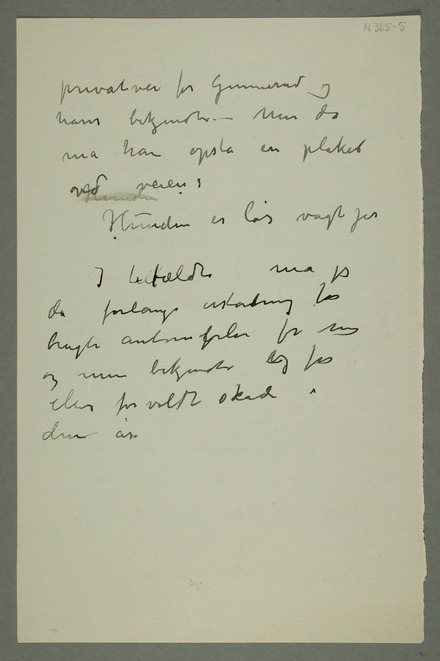 N 365-5
privatvei for Gunnerud og
hans bekjendte.— Men da
må han opslå en plakat
ved veien:
Hunden er løs vogt jer
I tilfældet må jeg
da forlange erstatning for
brugte automobiler for mig
og mine bekjendte og for
eller forvoldt skade i
den